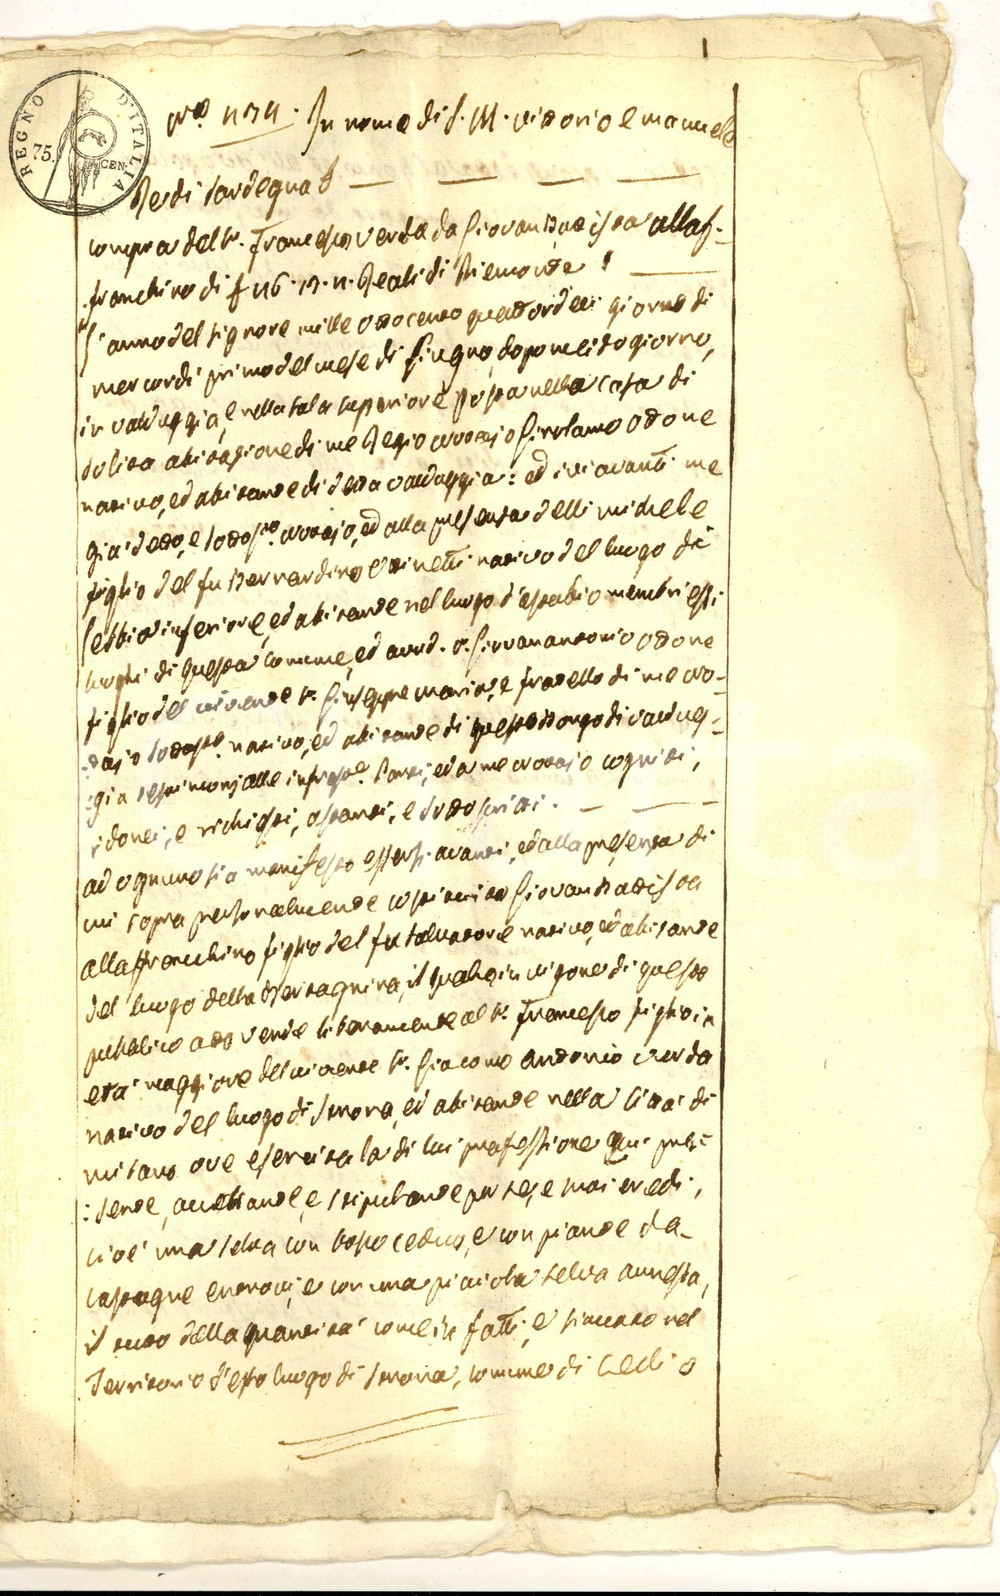 REGNO D'ITALIA
75. CEN.
N.º 1174. In nome di S. M. vittorio emanuele
Re di sardegna &
compra del Sr. Francesco verda da Giovan Batista allaf-
franchino di £ 116. 13. n. Reali di Piemonte !
L'anno del signore mille ottocento quattordeci giorno di
mercordi primo del mese di Giugno, dopo mezzo giorno,
in valduggia, e nella sala superiore posta nella casa di
solita abitazione di me Regio nottajo Girolamo ottone
nativo, ed abitante di detta valduggia: ed ivi avanti me
già detto, e sottosto. nottajo, ed alla presenza delli michele
figlio del fu Bernardino ottinetti nativo del luogo di
inferiore, ed abitante nel luogo d' membri essi
luoghi di questa comune, ed avvd. o. Giovanantonio ottone
figlio del vivente Sr. Giuseppe maria, e fratello di me not-
:tajo sottosto. nativo, ed abitante di questo Borgo di valdug-
:gia testimonj alle infrate. Parti, ed a me nottajo cogniti,
idonei, e richiesti, astanti, e sottoscritti.
ad ognuno sia manifesto essersi avanti, ed alla presenza di
cui sopra personalmente costituito Giovan Batista
allaffranchino figlio del fu salvatore nativo, ed abitante
del luogo della Bertagnina, il quale, in vigore di questo
pubblico atto vende liberamente al Sr. Francesco figlio in
età maggiore del vivente Sr. Giacomo antonio verda
nativo del luogo di , ed abitante nella Città di
milano ove esercita la di lui professione qui pre-
:sente, accettante, e stipulante per se, e suoi eredi,
cioè una selva con bosco ceduo, e con piante da
castagne , e con una picciola selva annessa,
il tutto della quantità come in fatti, e situato nel
Territorio d'esso luogo di , comune di Cellio